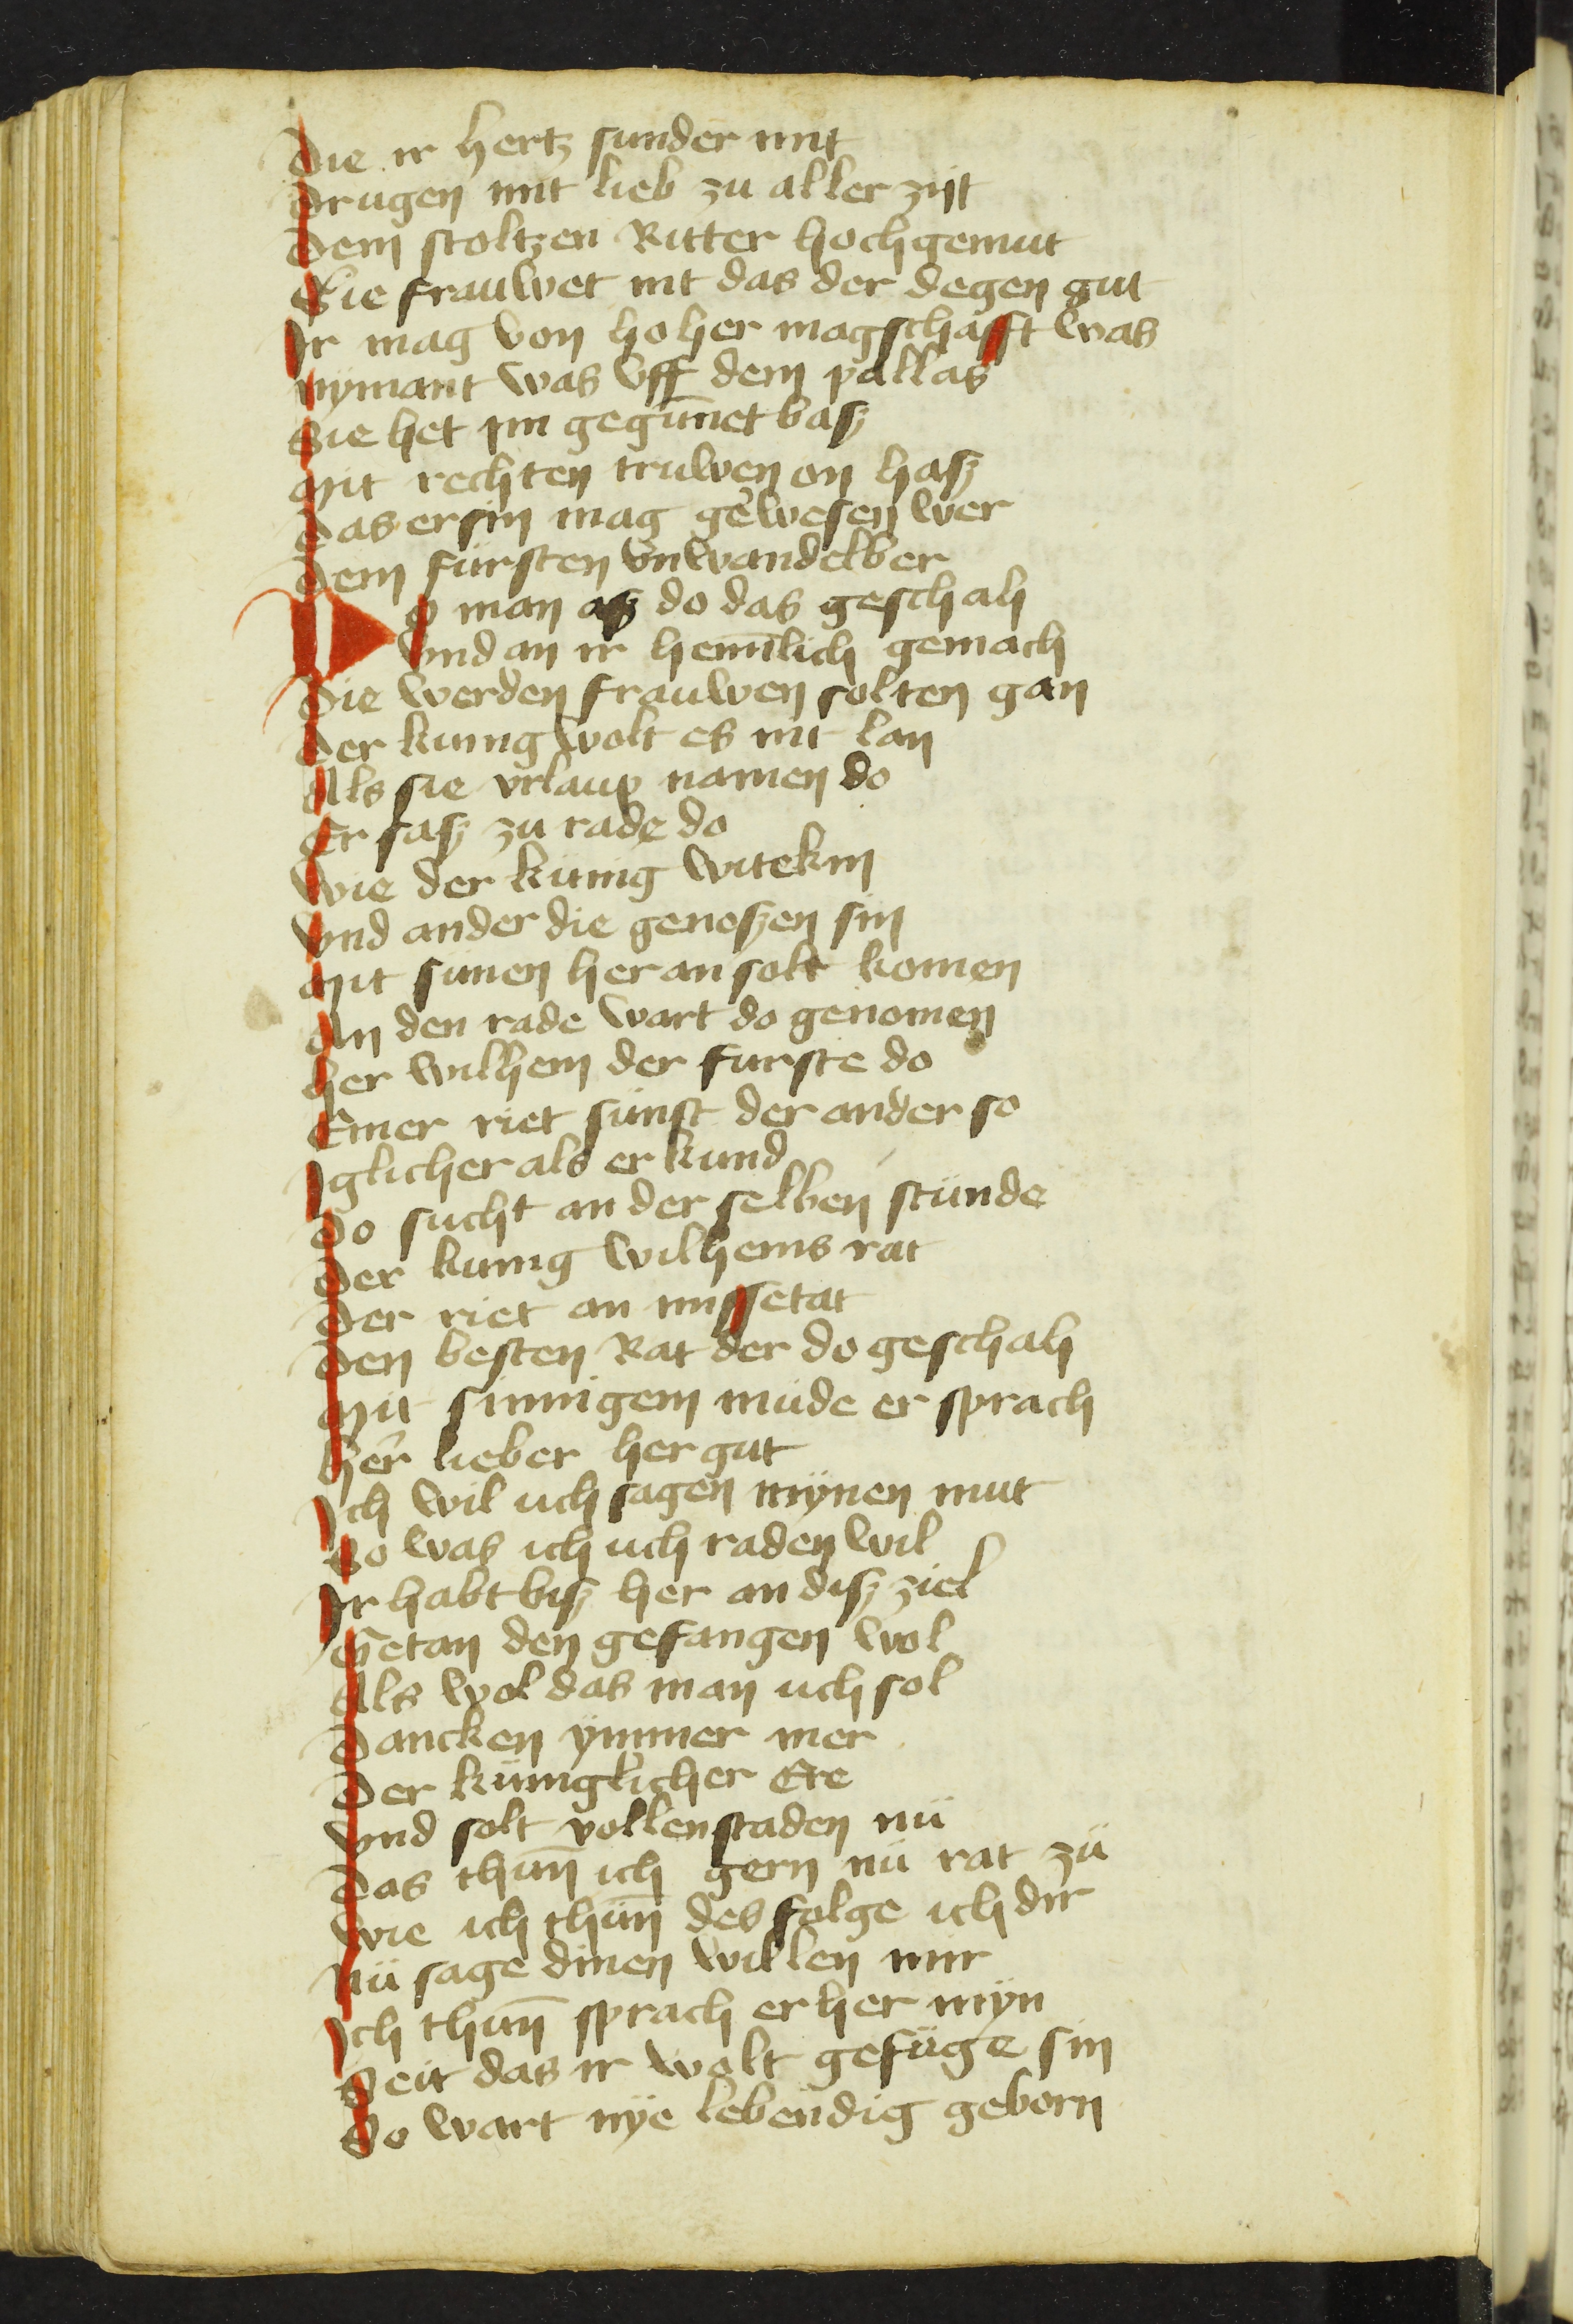 Die ir hertz sunder nitt
Drugen mit lieb zu aller zijt
Dem stoltzen Ritter hochgemut
Sie frauwet nit das der degen gut
Ir mag von hoher magschafft was
nÿmant was vff dem pallas
Sie het im gegūnet basz
Mit rechten truwen on hasz
Das er sin mag gewesen wer
Dem fursten vnwandelber
Do man asz do das geschah
Vnd an ir hemlich gemach
Die werden frauwen solten gan
Der kunig wolt es nit lan
Als sie vrlaup namen do
Er sasz zu rade do
Wie der kunig witekin
Vnd ander die genoszen sin
Mit sunen heran solt komen
An den rade wart do genomen
Her wilhem der furste do
Einer riet sünst der ander so
Iglicher als er kund
Do sucht an der selben stünde
Der kunig wilhems rat
Der riet an missetat
Den besten Rat der do geschah
Mit sinnigem müde er sprach
Her lieber her gut
Ich wil uch sagen mÿnen mut
So was ich uch raden wil
Ir habt bisz her an disz ziel
Getan den gefangen wol
Als wol das man uch sol
Dancken ÿmmer mer
Der küniglicher Ere
Vnd solt vollenstaden nü
Das thūn ich gern nü rat zü
Wie ich thūn des folge ich dir
Nü sage dinen willen mir
Ich thūn sprach er her mÿn
Seit das ir wolt gefüge sin
So wart nÿe lebendig geborn